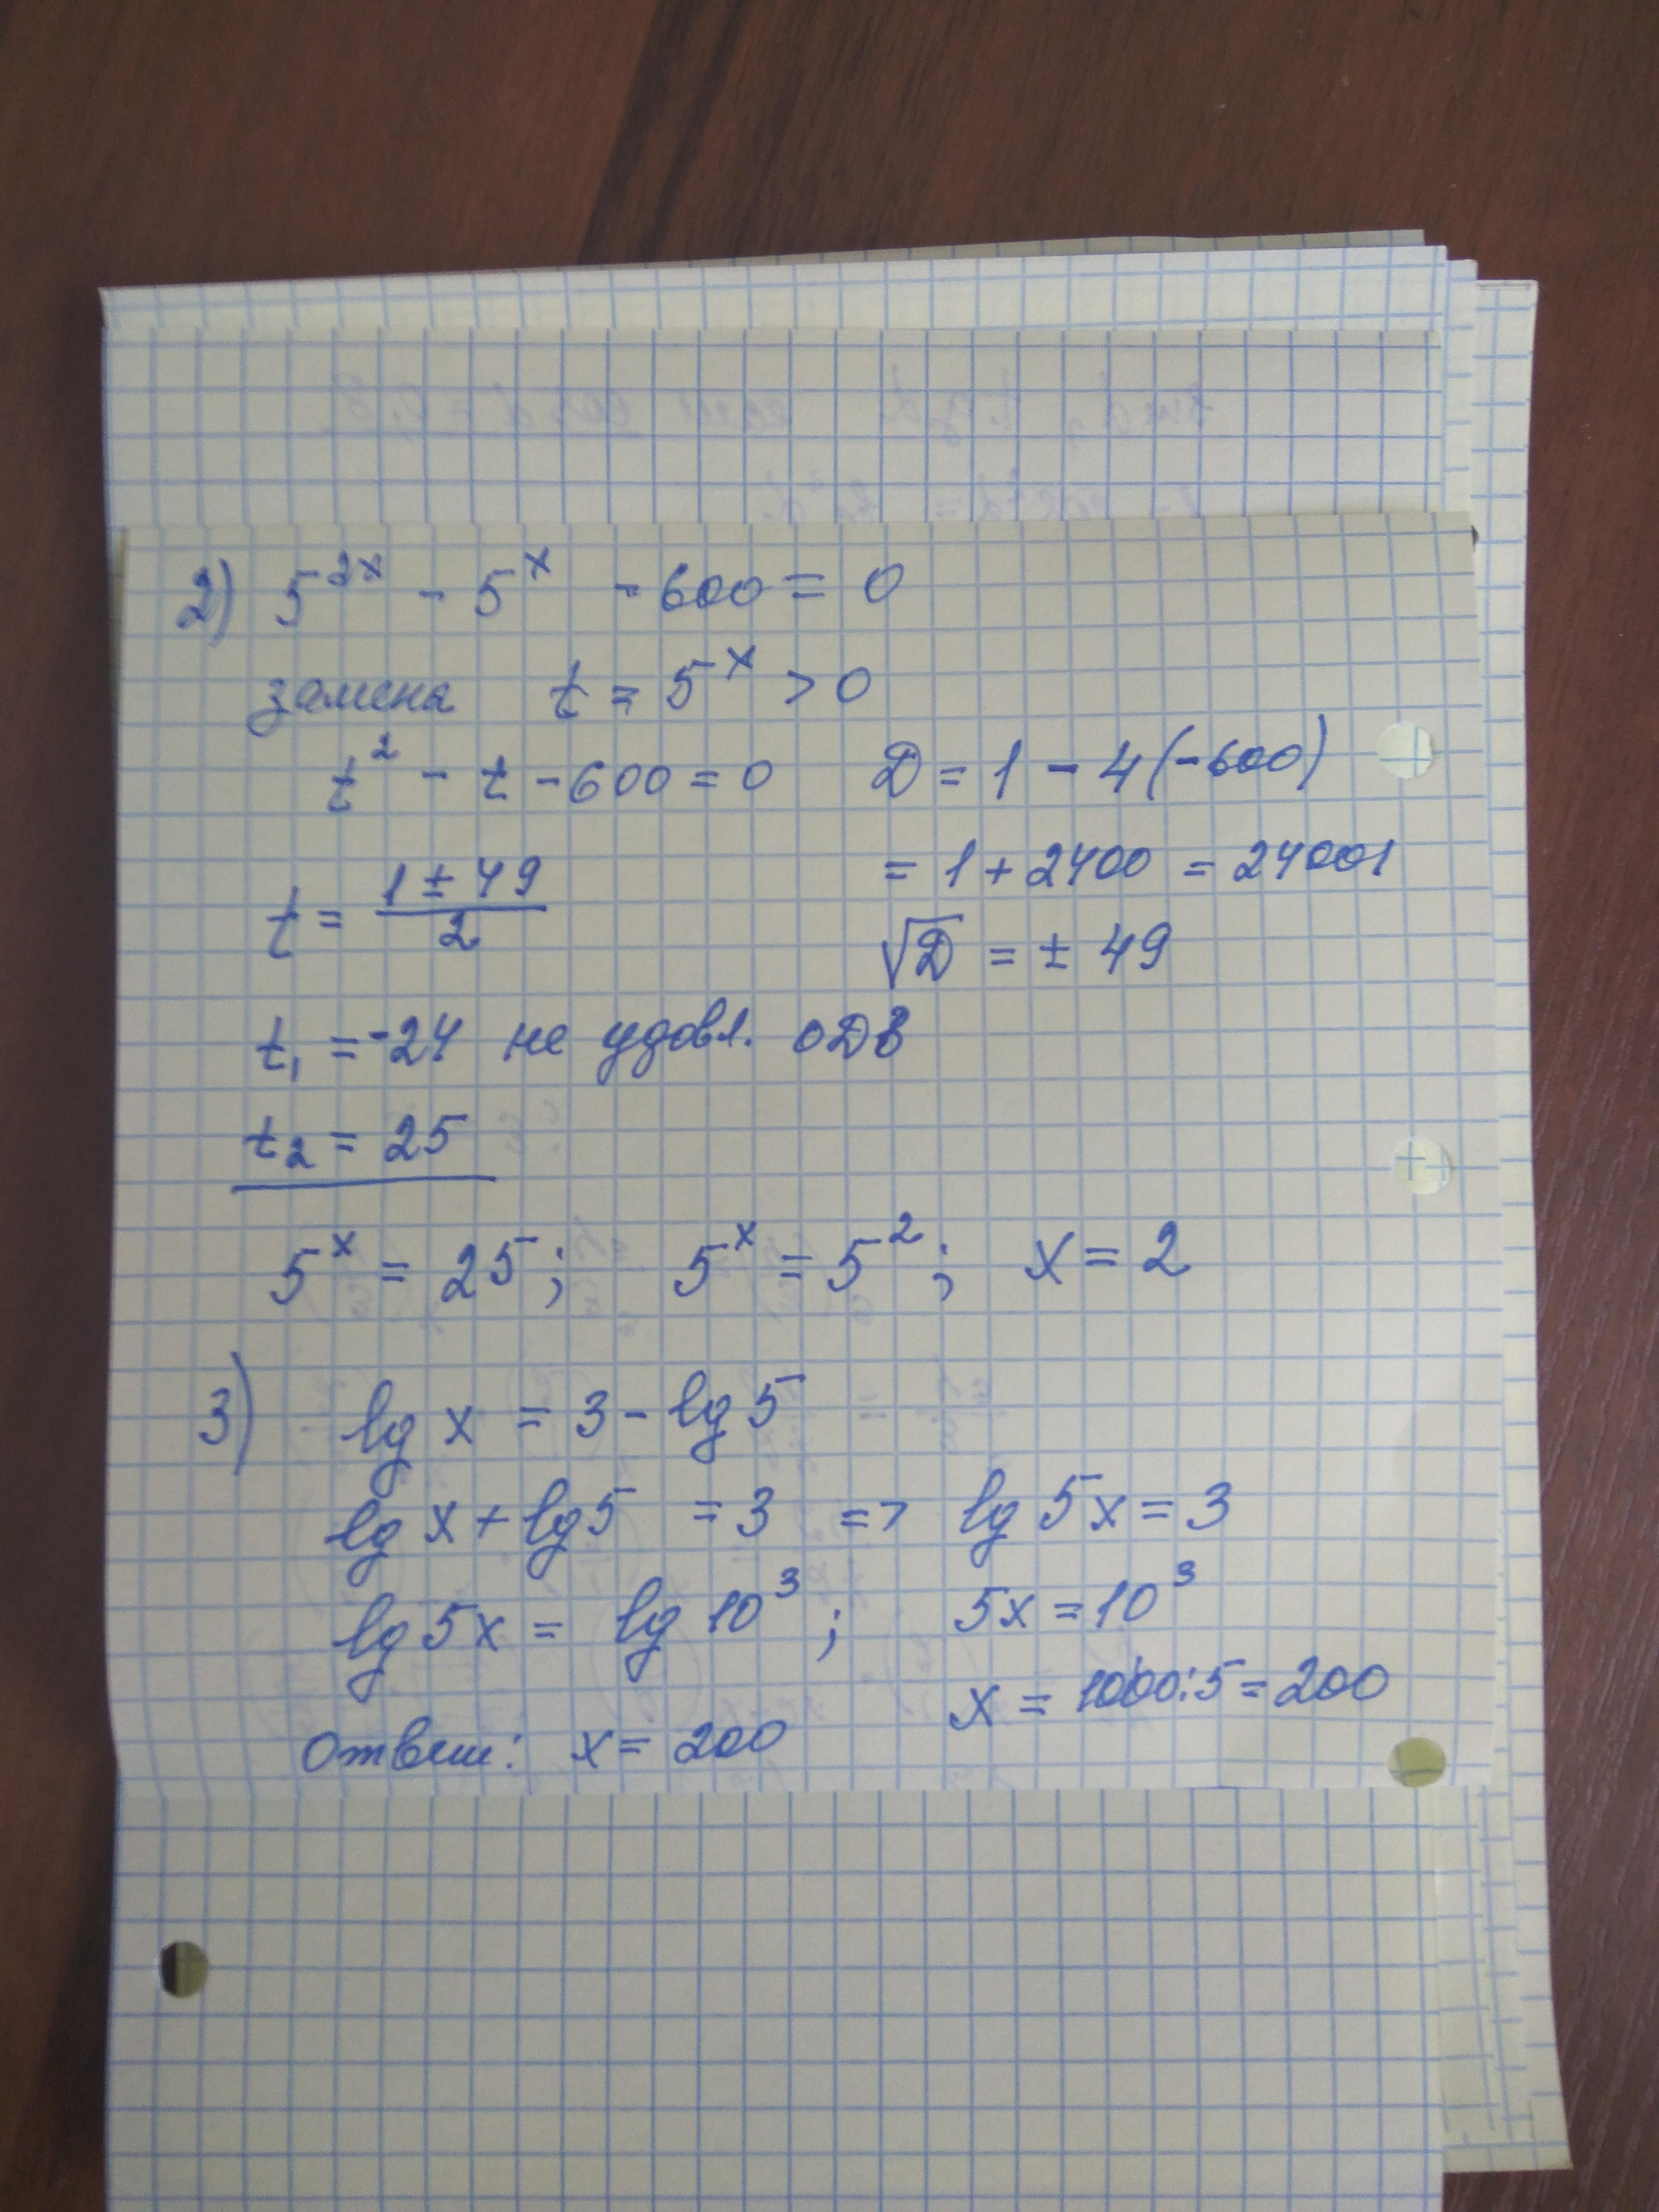 2) 5^2x - 5^x - 600 = 0
замена t = 5^x > 0
t^2 - t - 600 = 0 D = 1 - 4(-600)
= 1 + 2400 = 24001
t = (1 ± 49)/2
√D = ± 49
t₁ = -24 не удовл. ОДЗ
t₂ = 25
5^x = 25; 5^x = 5^2; x = 2
3) lg x = 3 - lg 5
lg x + lg 5 = 3 => lg 5x = 3
lg 5x = lg 10^3; 5x = 10^3
x = 1000:5 = 200
Ответ: x = 200